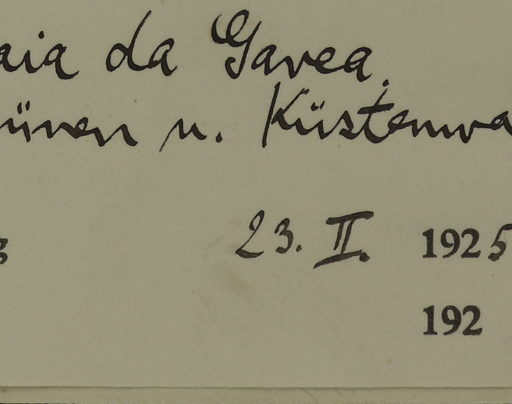 aia da Gavea.
ünen u. Küstenwa
g 23. II. 1925
192